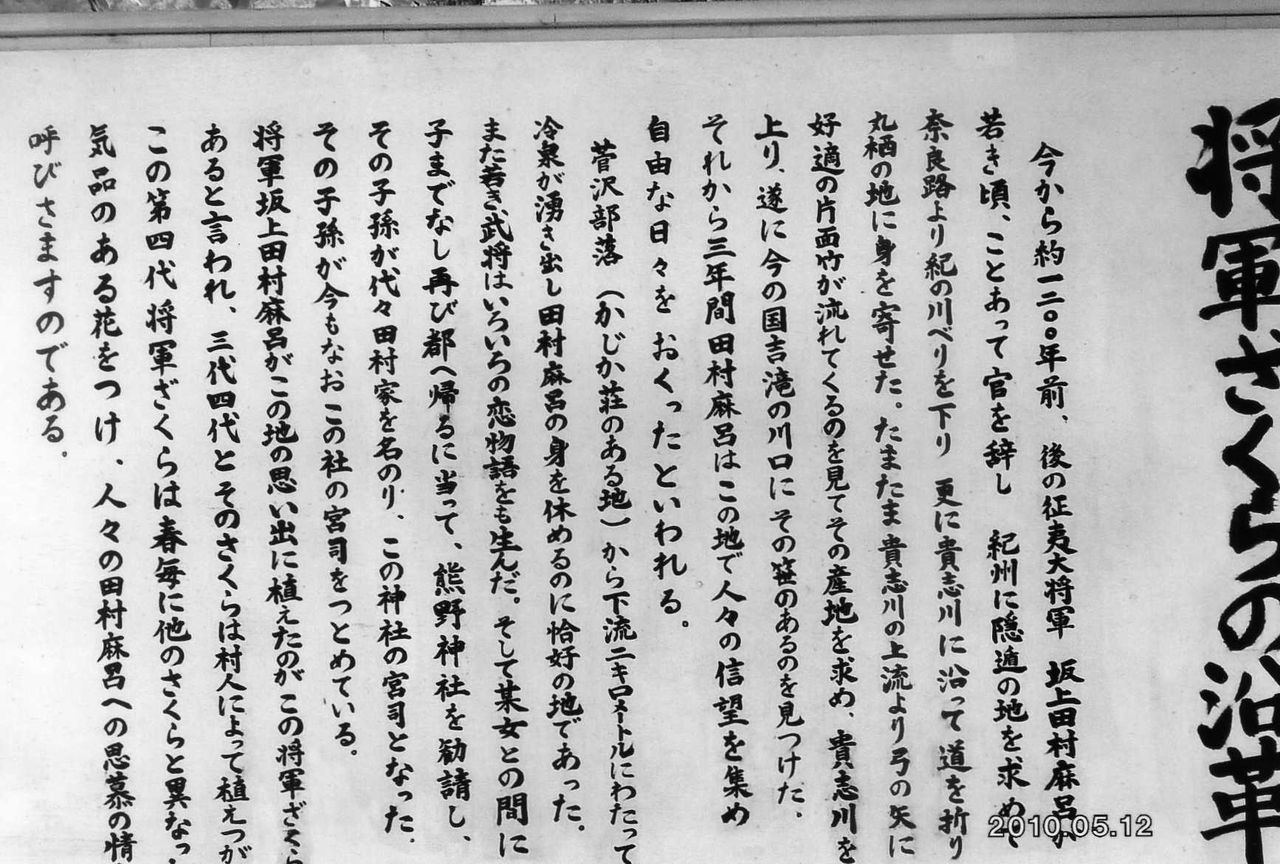 将軍ざくらの沿革
今から約一二〇〇年前、後の征夷大将軍 坂上田村麻呂が
若き頃、ことあって官を辞し 紀州に隠遁の地を求めて
奈良路より紀の川べりを下り 更に貴志川に沿って道を折り
丸栖の地に身を寄せた。たまたま貴志川の上流より弓の矢に
好適の片面竹が流れてくるのを見てその産地を求め、貴志川を
上り、遂に今の国吉滝の川口にその笹のあるのを見つけた。
それから三年間田村麻呂はこの地で人々の信望を集め
自由な日々をおくったといわれる。
菅沢部落(かじか荘のある地)から下流二キロメートルにわたって
冷泉が湧き出し田村麻呂の身を休めるのに恰好の地であった。
また若き武将はいろいろの恋物語をも生んだ。そして某女との間に
子までなし再び都へ帰るに当って、熊野神社を勧請し、
その子孫が代々田村家を名のり、この神社の宮司となった。
その子孫が今もなおこの社の宮司をつとめている。
将軍坂上田村麻呂がこの地の思い出に植えたのがこの将軍ざくら
あると言われ、三代四代とそのさくらは村人によって植えつが
この第四代将軍ざくらは春毎に他のさくらと異なっ
気品のある花をつけ、人々の田村麻呂への思慕の情
呼びさますのである。
2010.05.12